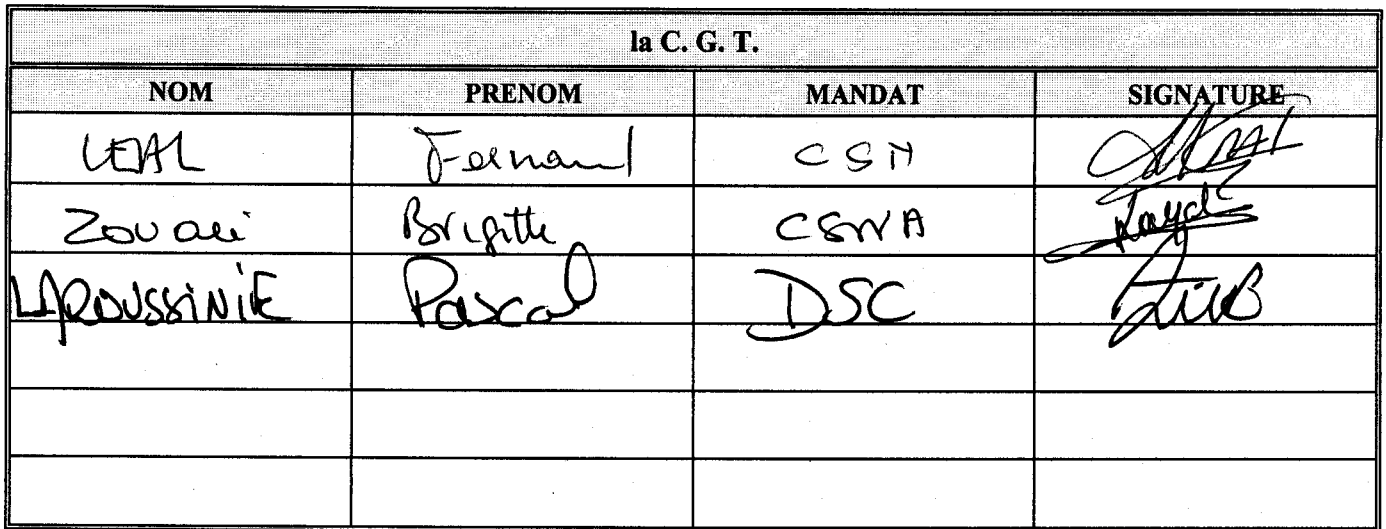 la C. G. T.
NOM PRENOM MANDAT SIGNATURE
LEAL Fernand CSN
Zouari Brigitte CSNA
LAROUSSINIE Pascal DSC